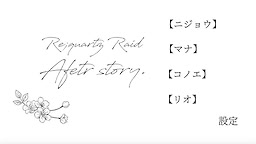 Rejquartz Raid
Afetr story.
【ニジョウ】
【マナ】
【コノエ】
【リオ】
設定